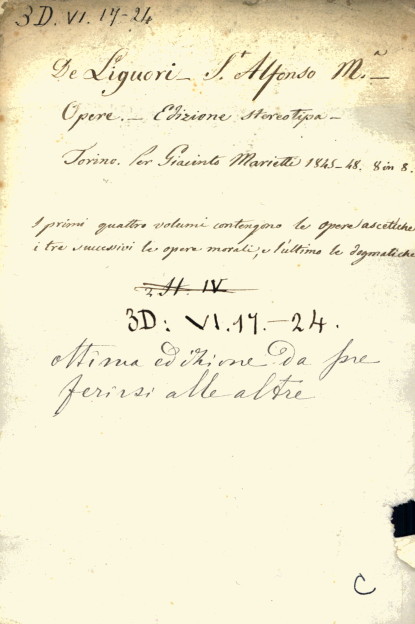 3D. VI. 17-24
De Liguori - S.t Alfonso M.a -
Opere. - Edizione stereotipa -
Torino. Per Giacinto Marietti 1845-48. 8 in 8.
I primi quattro volumi contengono le opere ascetiche
i tre successivi le opere morali, e l'ultimo le dogmatiche
2 H. IV
3D: VI. 17. - 24.
ottima edizione da pre
ferirsi alle altre
C